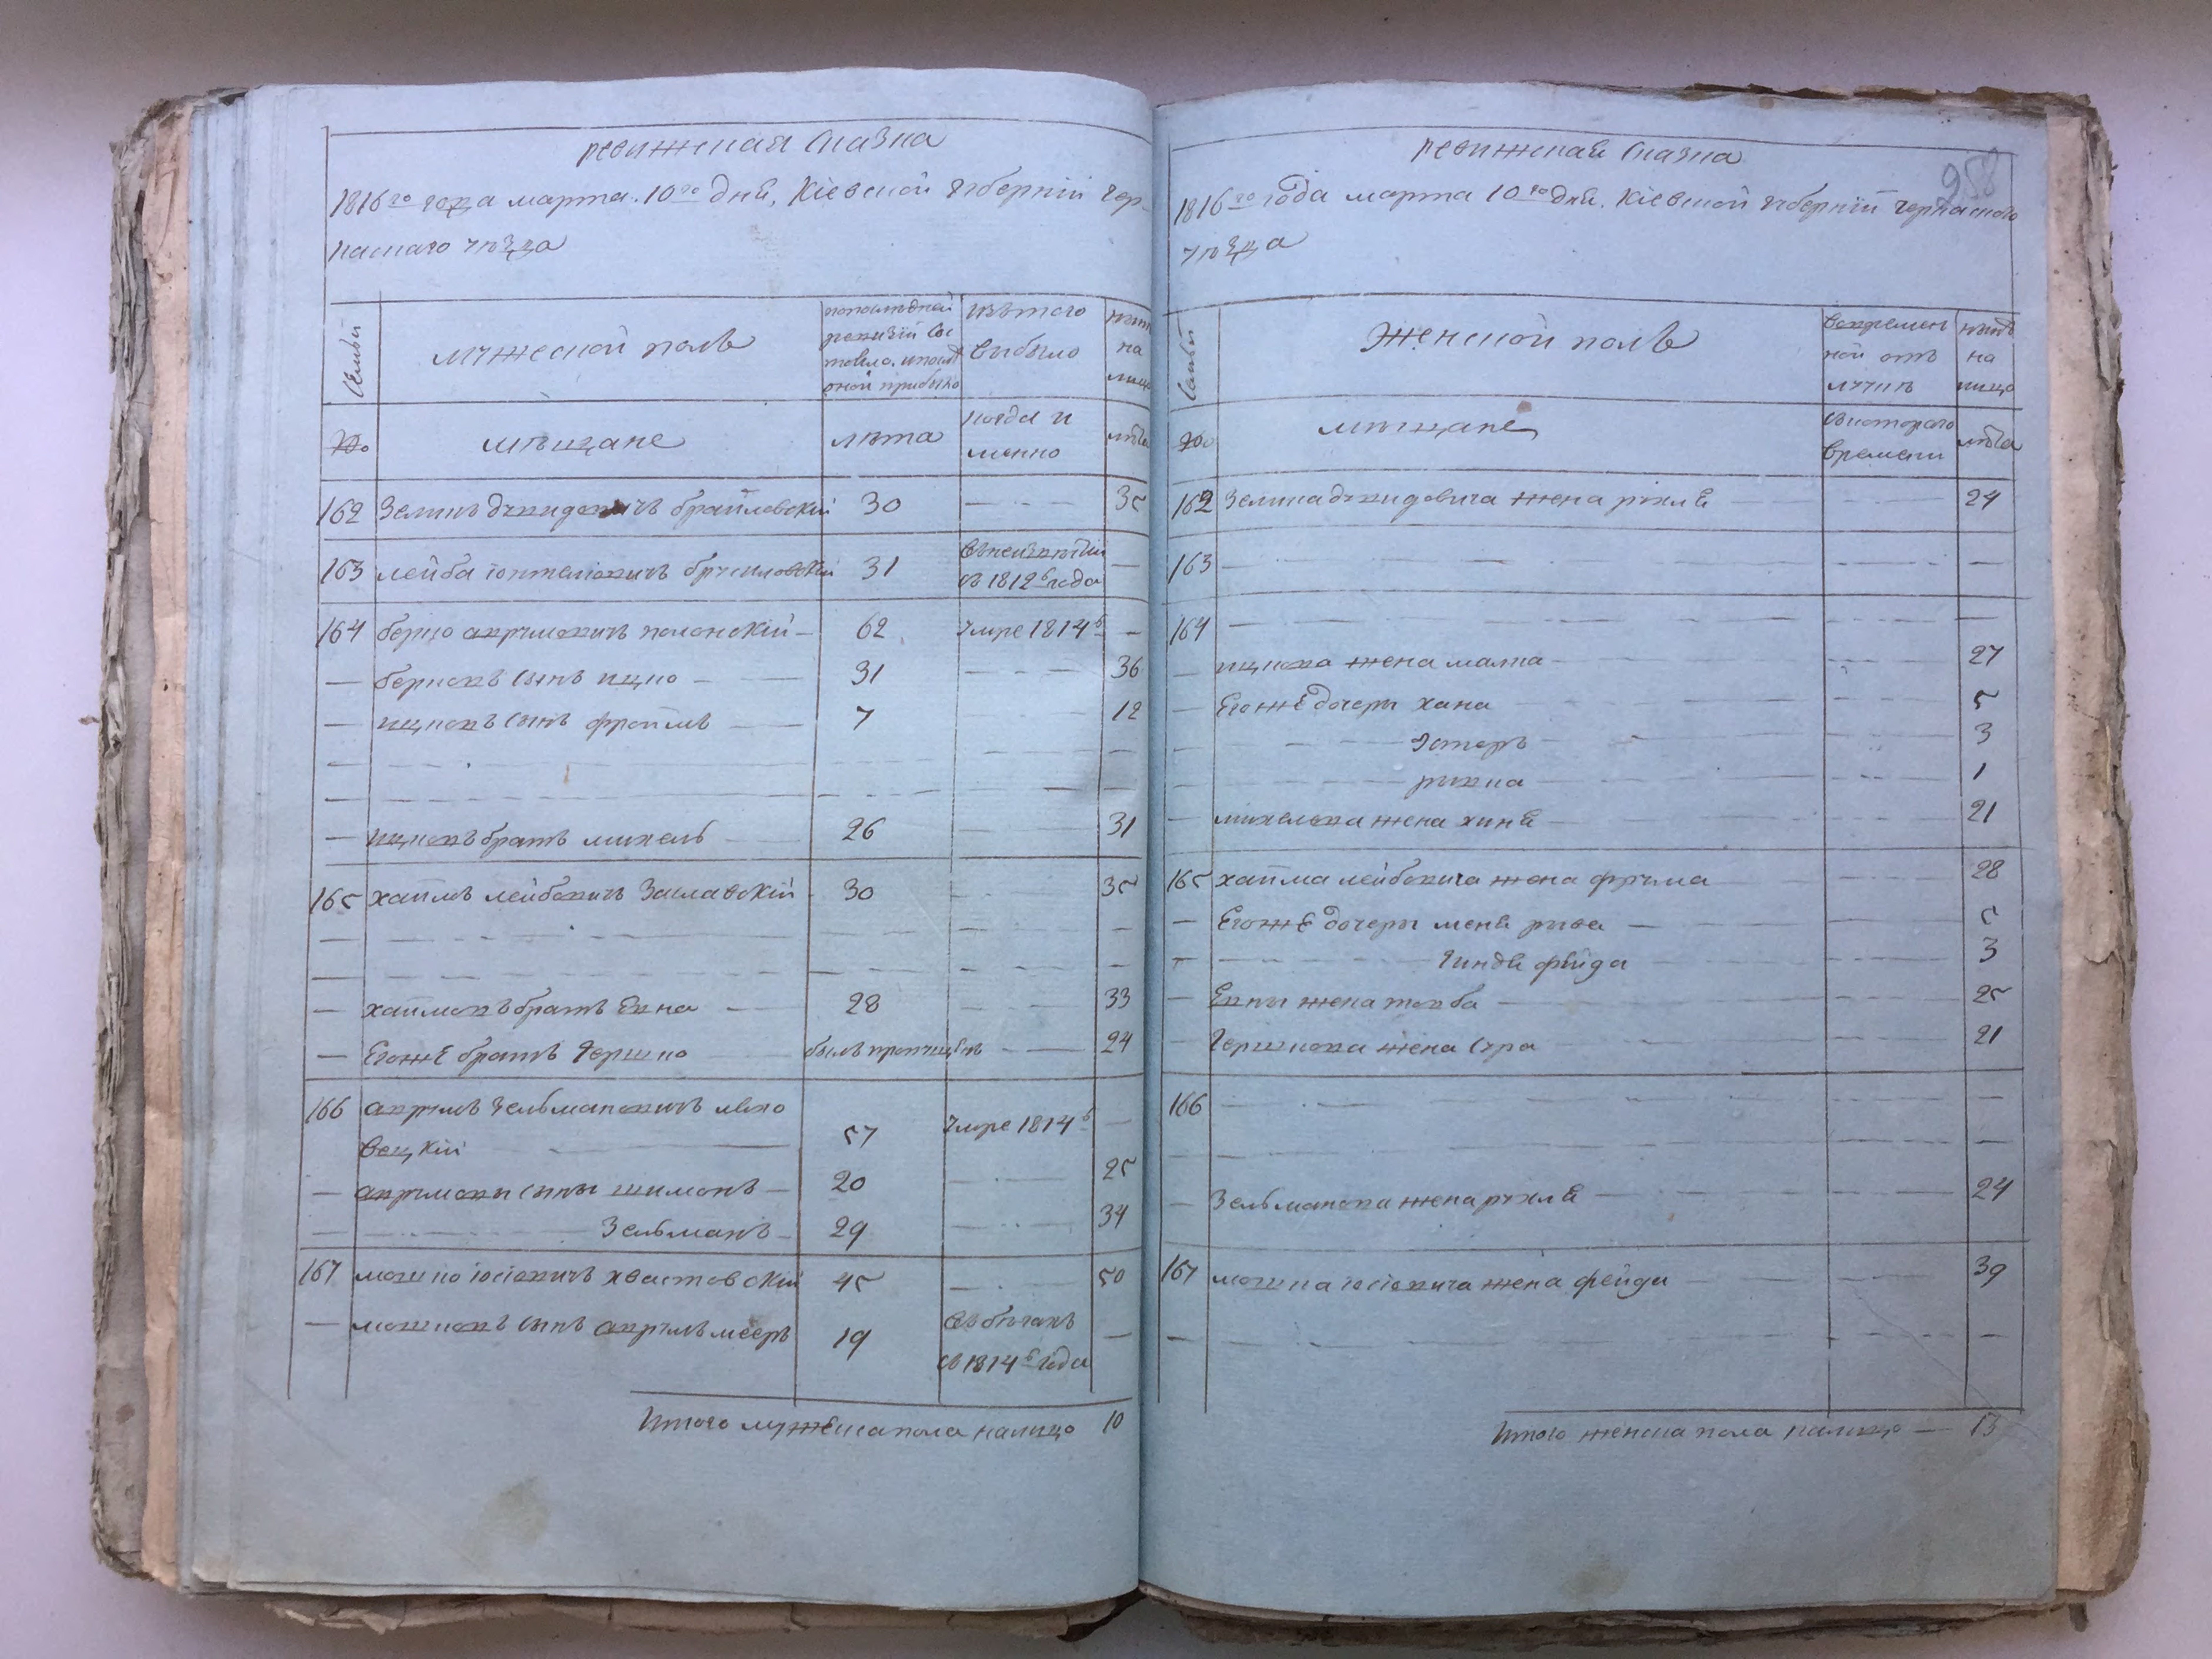 ревижская Сказка
1816го года марта 10го дня, Кіевской губерніи чер-
каскаго уѣзда
Семьи
мужеской полъ
попослѣдней
ревизіи Сос
тояло. ипослѣ
оной прибыло
изътого
выбыло
нынѣ
на
лицо
№
мѣщане
лѣта
когда и
менно
лѣта
162 Зеликъ дувидовичъ браиловскій 30 — 35
163 лейба іонтелювичъ брусиловскій 31
съ 1812го года —
164 берко аврумовичъ полонскій — 62 Умре 1814го —
— берковъ сынъ ицко — 31 — 36
— ицковъ сынъ фроимъ — 7 12
— ицковъ братъ михель 26 — 31
165 хаимъ лейбовичъ Заславскій 30 — 35
— хаимовъ братъ Евна — 28 — 33
— Егожъ братъ Гершко былъ пропущенъ — 24
166 аврумъ Зельмановичъ ляхо
вецкій — 57 Умре 1814го —
— аврумовы сыны шимонъ — 20 — 25
— Зельманъ — 29 — 34
167 мошко іосіовичъ хвастовскій 45 — 50
— мошковъ сынъ аврумъ мееръ 19 въ бѣгахъ —
съ 1814го года
Итого мужеска пола налицо 10
958
ревижская Сказка
1816го года марта 10го дня. Кіевской губерніи черкаского
уѣзда
Семьи
Женской полъ
вовремен
ной отъ
лучкѣ
нынѣ
на
лицо
№
мѣщане
Скоторого
времени
лѣта
162 Зелика дувидовича жена рухля 24
163 — —
164 — —
— ицкова жена малка — 27
— Егожъ дочеры хана 5
— Эстеръ 3
— ривка 1
— михелева жена хиня 21
165 хаима лейбовича жена фрума 28
— Егожъ дочеры меня рива — 5
— Гиндя фейга 3
— Евны жена товба — 25
— Гершкова жена Сура 21
166 — —
— Зельманова жена рухля 24
167 мошка іосіовича жена фейга 39
— —
Итого женска пола налицо — 13